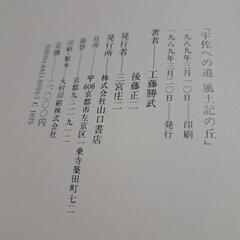 『宇佐への道 風土記の丘』
一九八九年三月一〇日──印刷
一九八九年三月二〇日──発行
著者──工藤勝武
後藤正二
発行者──三宮庄二
発行所──株式会社山口書店
住所──〒606 京都市左京区一乗寺築田町七二
振替──京都九─二二九一二
印刷・製本──大村印刷株式会社
定価──一、〇〇〇円